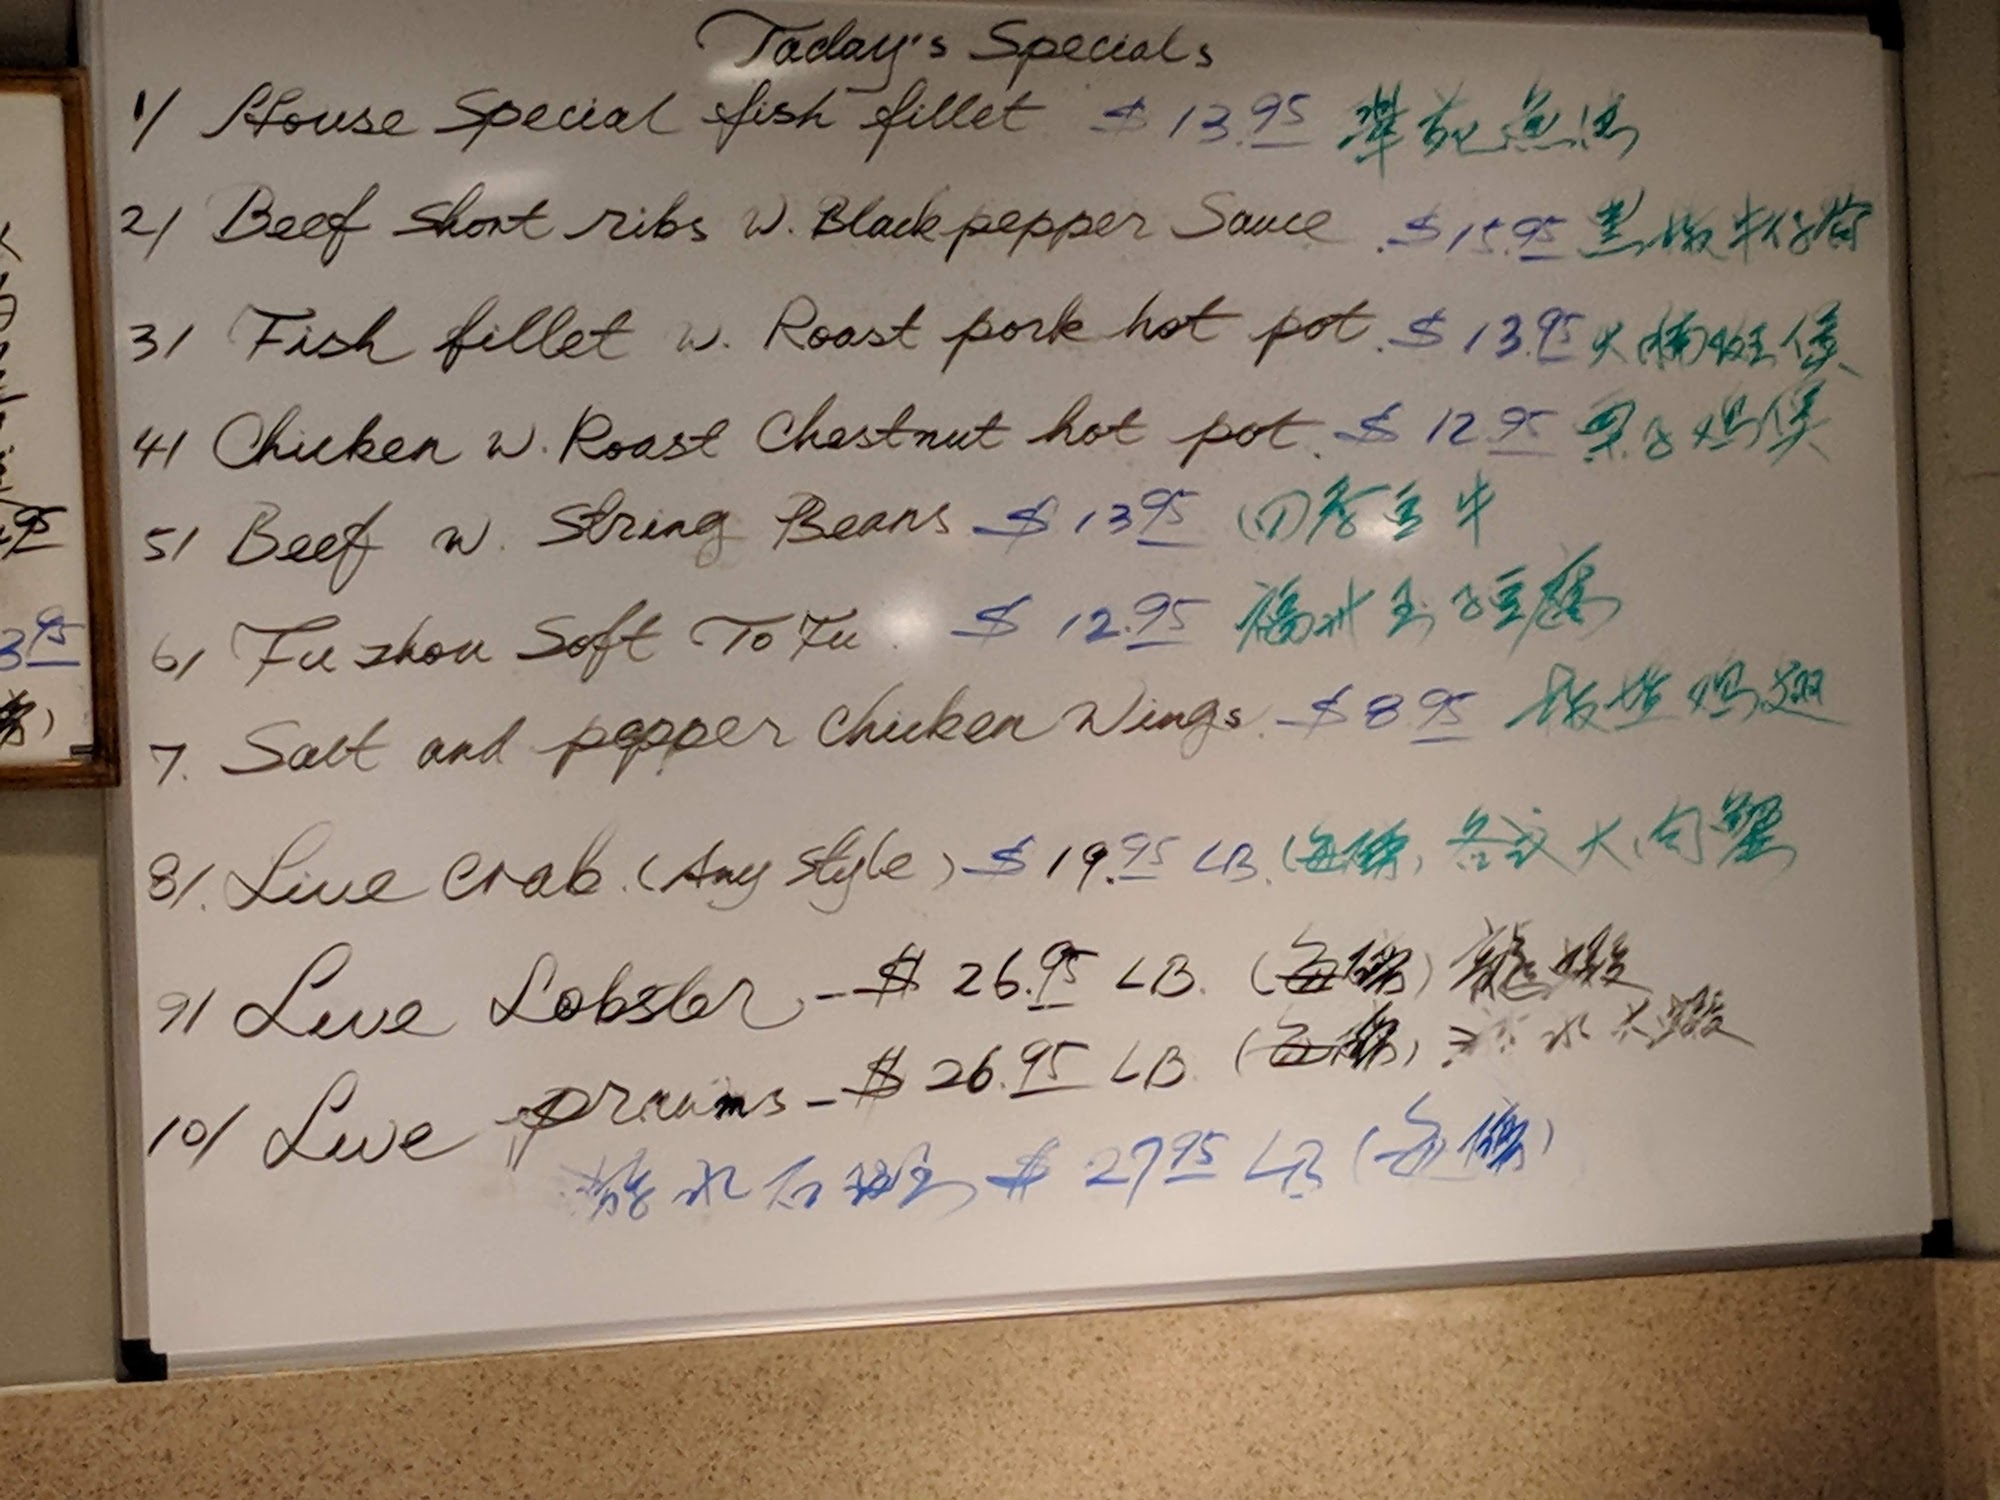 Today's Specials
1/ House Special fish fillet $13.95
2/ Beef Short ribs W. Black pepper Sauce $15.95 黑椒牛仔骨
3/ Fish fillet w. Roast pork hot pot. $13.95 火腩班煲
4/ Chicken w. Roast Chestnut hot pot. $12.95 栗子鸡煲
5/ Beef w. String Beans $13.95 四季豆牛
6/ Fu zhou Soft To Fu $12.95 福州玉子豆腐
7. Salt and pepper Chicken Wings $8.95 椒盐鸡翅
8/. Live crab. (Any Style) $19.95 LB. (每磅) 各式大肉蟹
9/ Live Lobster - $26.95 LB. (每磅) 龍蝦
10/ Live prawns - $26.95 LB. (每磅) 水大蝦
$27.95 LB (每磅)
95
3 95